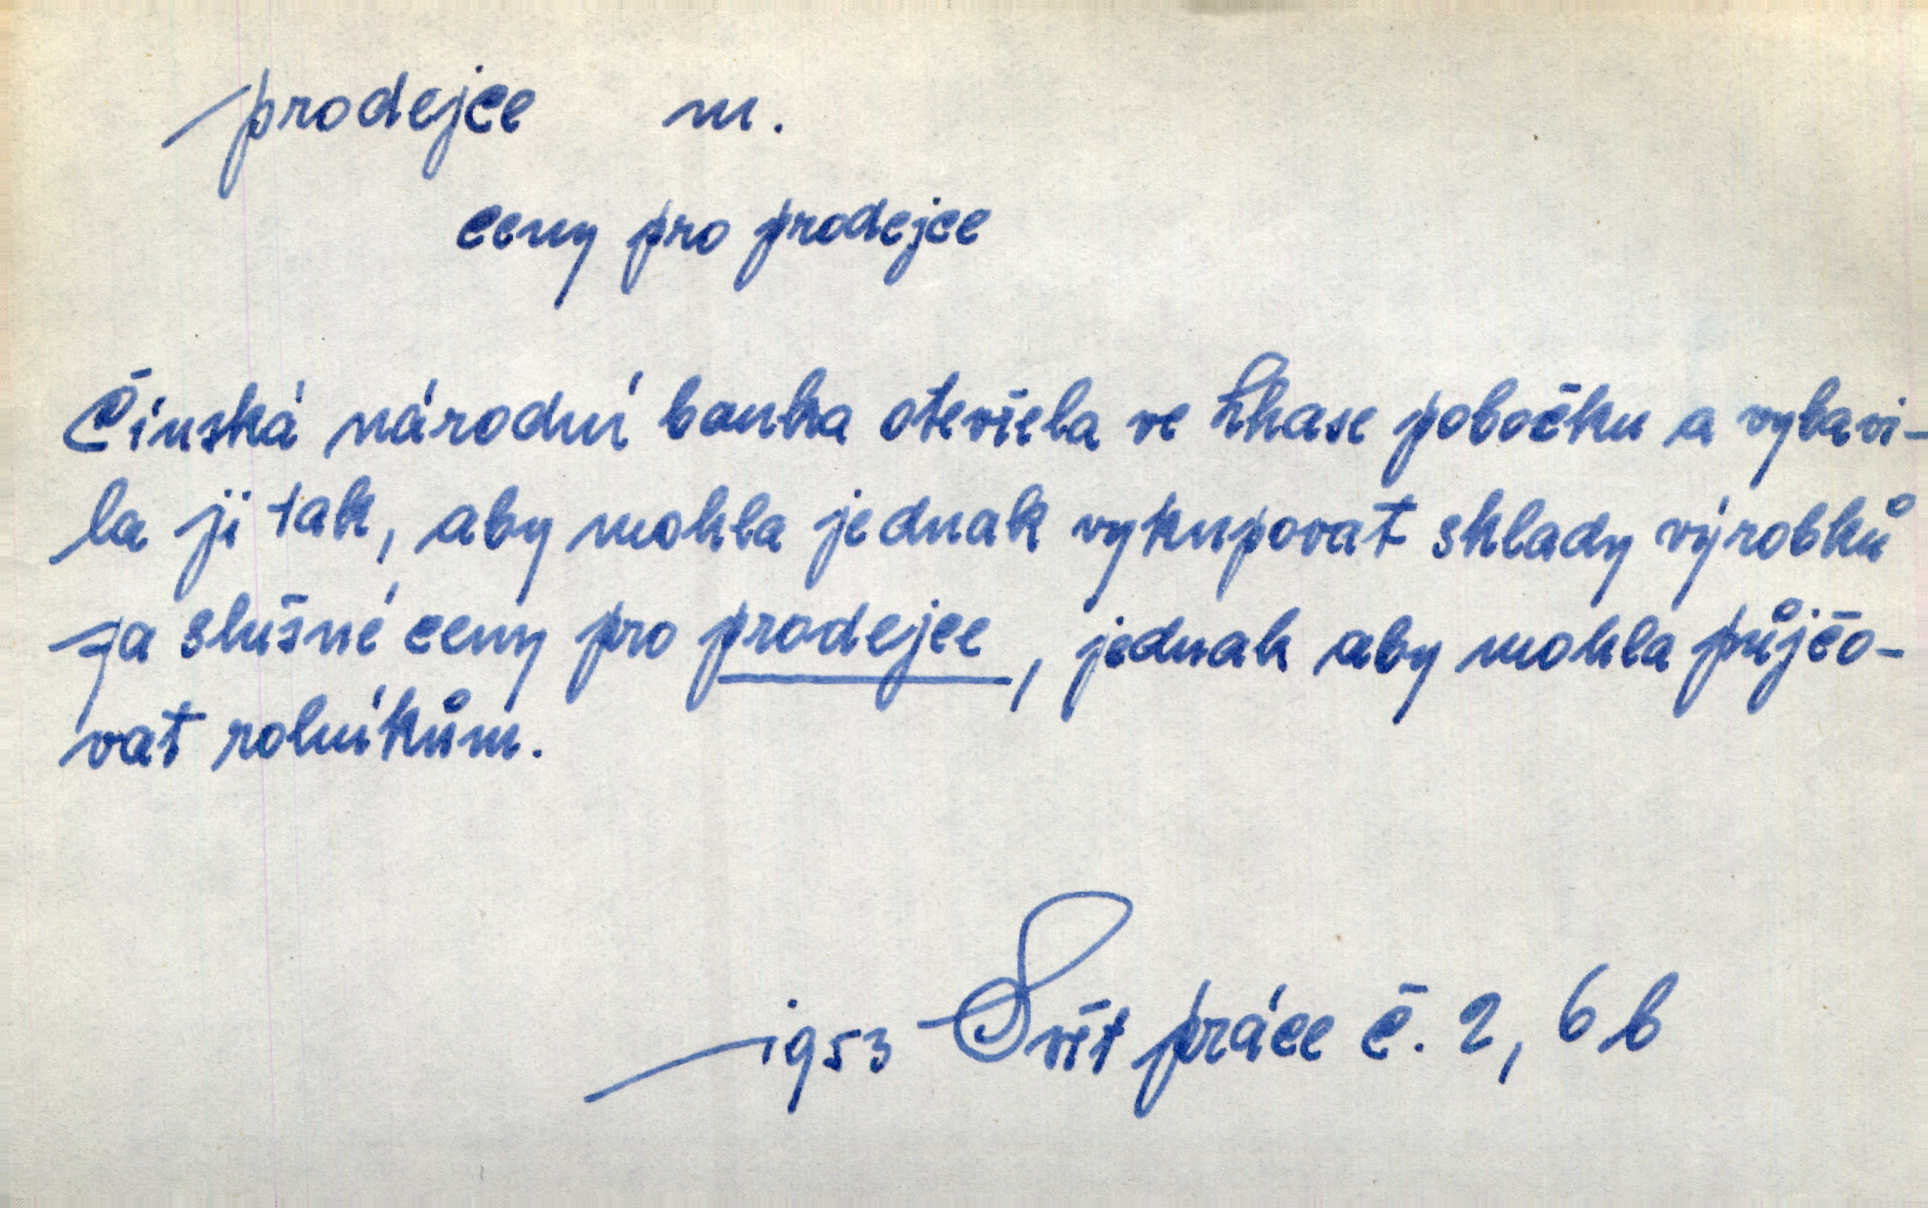 prodejce m.
ceny pro prodejce
Čínská národní banka otevřela ve Lhase pobočku a vybavi-
la ji tak, aby mohla jednak vykupovat sklady výrobků
za slušné ceny pro prodejce, jednak aby mohla půjčo-
vat rolníkům.
1953 Svět práce č. 2, 6b